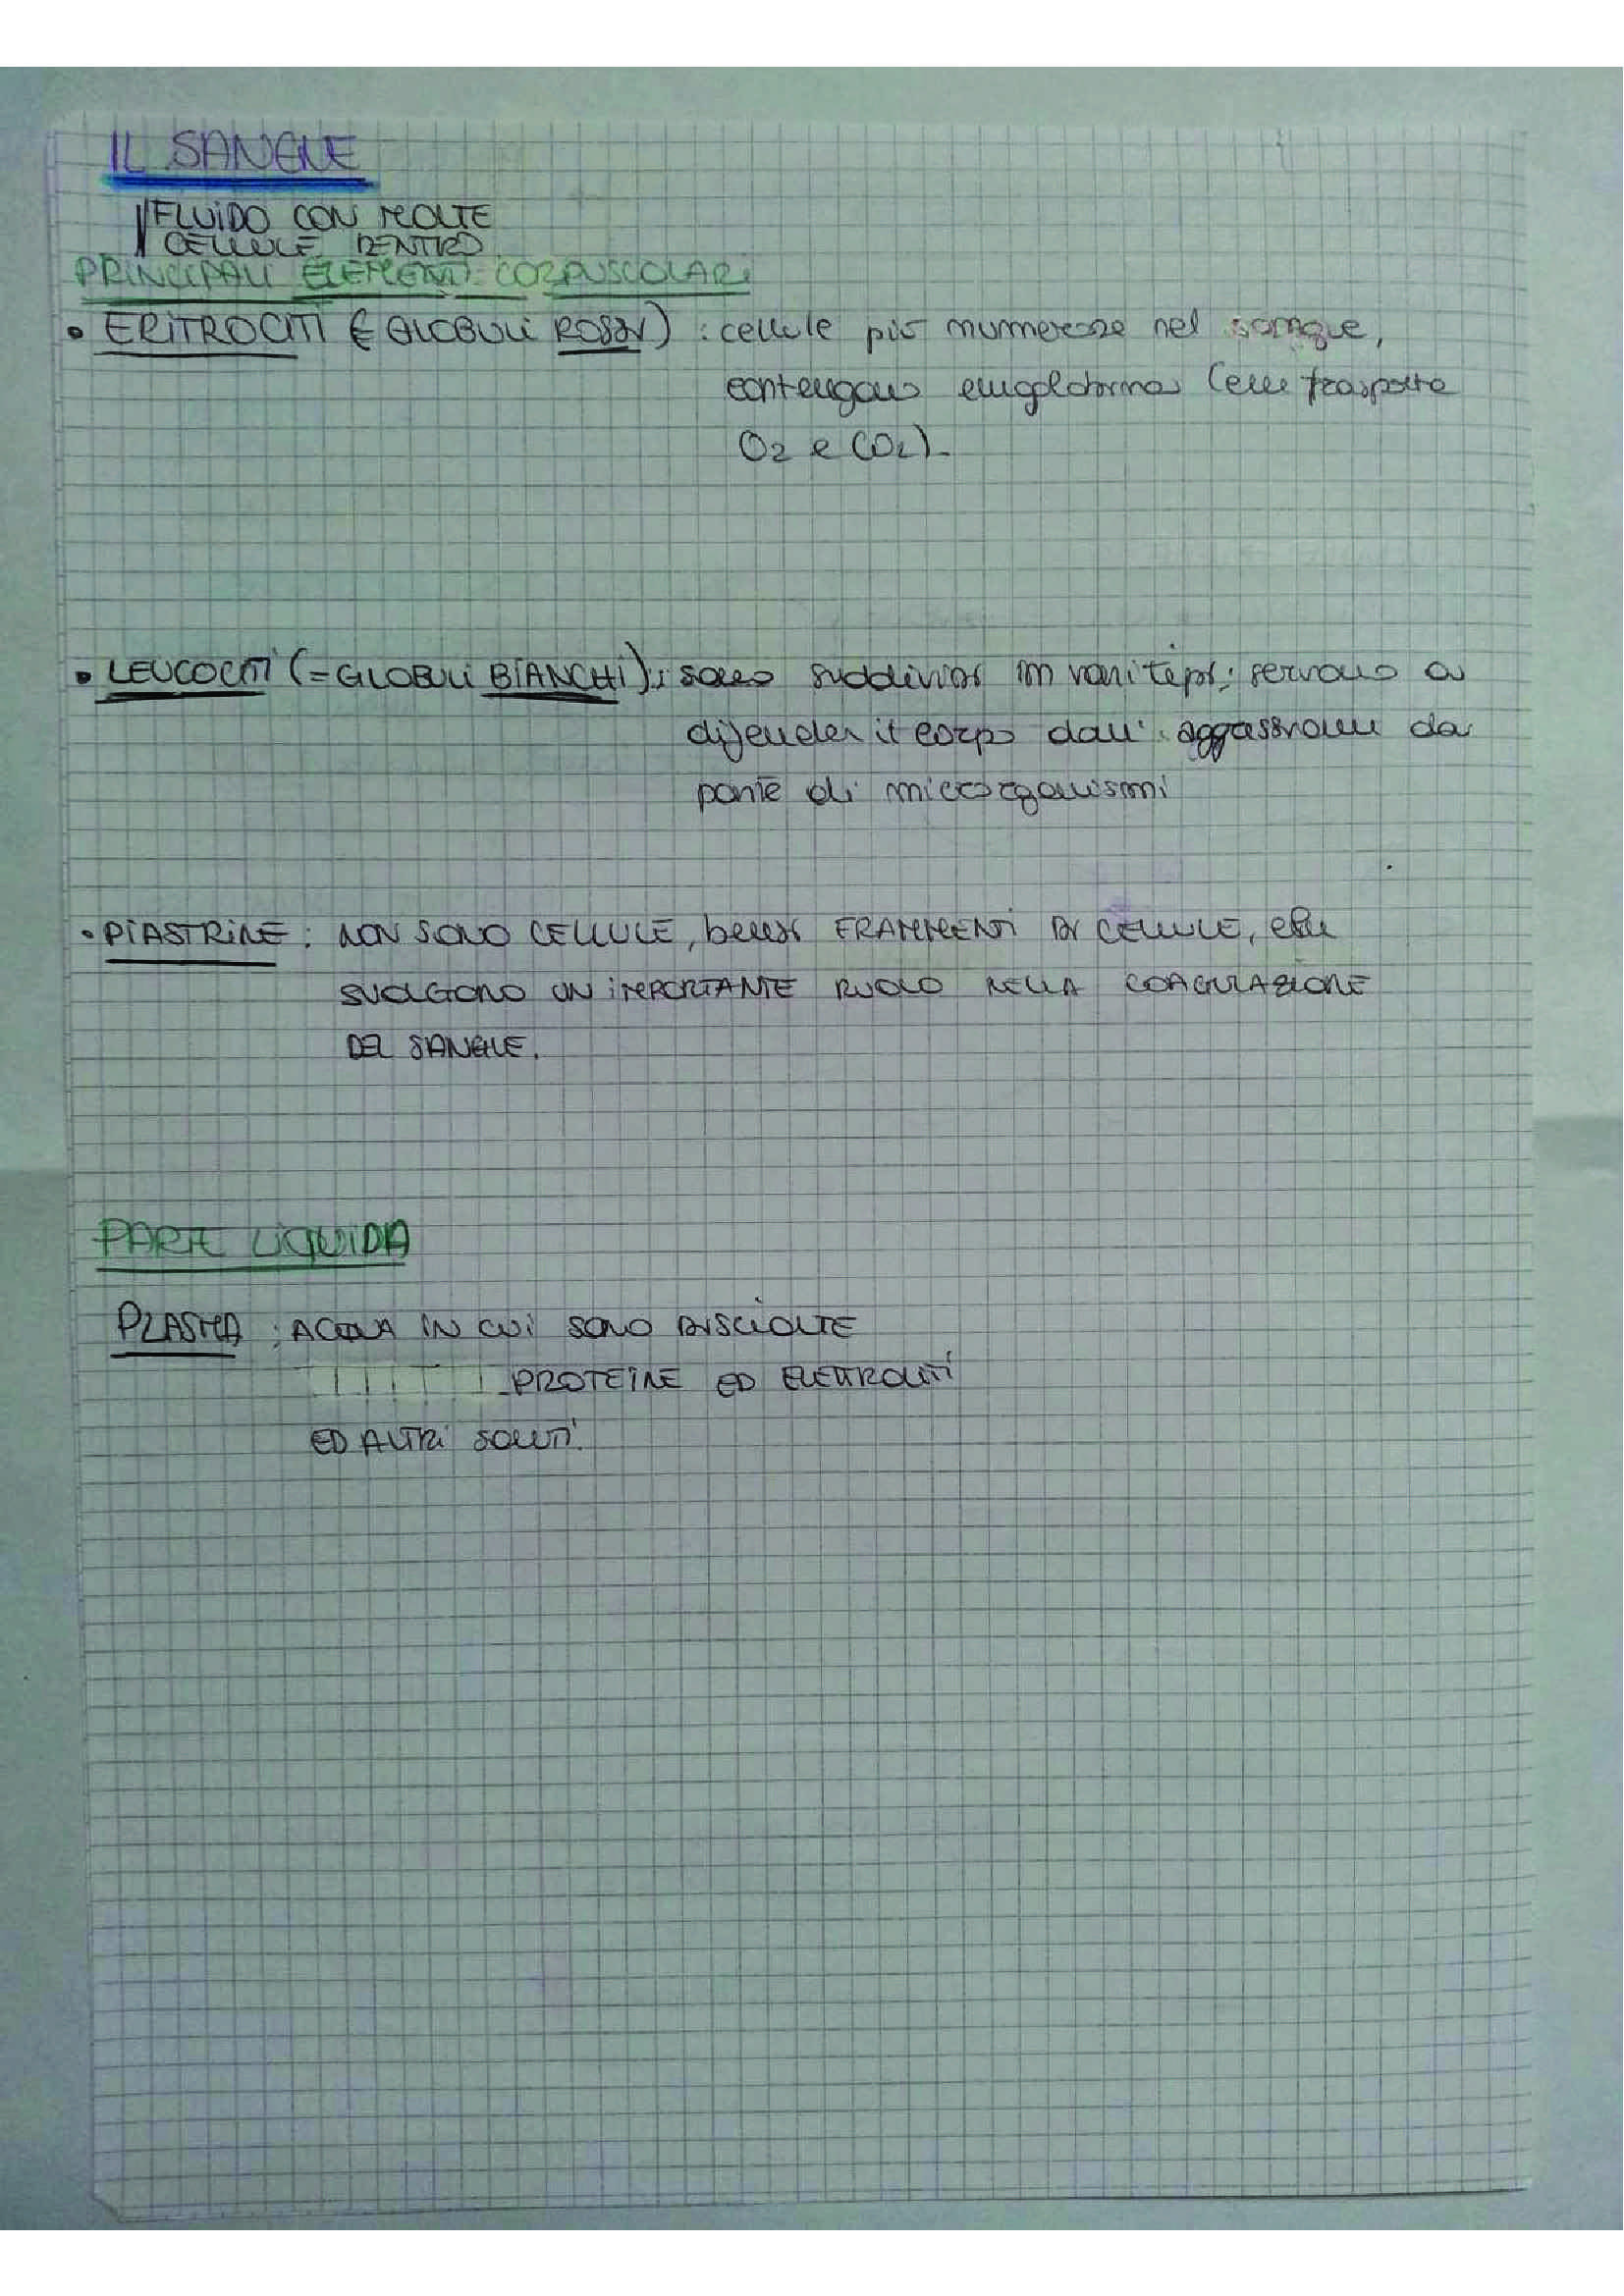 IL SANGUE
FLUIDO CON MOLTE
CELLULE DENTRO
PRINCIPALI ELEMENTI CORPUSCOLARI
• ERITROCITI (= GLOBULI ROSSI) : cellule più nummerose nel sangue,
contengono emoglobina (che trasporta
O2 e CO2).
• LEUCOCITI (= GLOBULI BIANCHI) : sono suddivisi in vari tipi; servono a
difender il corpo dall' aggressioni da
parte di microrganismi
• PIASTRINE : NON SONO CELLULE, bensì FRAMMENTI DI CELLULE, che
SVOLGONO UN IMPORTANTE RUOLO NELLA COAGULAZIONE
DEL SANGUE.
PARTE LIQUIDA
PLASMA : ACQUA IN CUI SONO DISCIOLTE
PROTEINE ED ELETTROLITI
ED ALTRI SOLUTI.